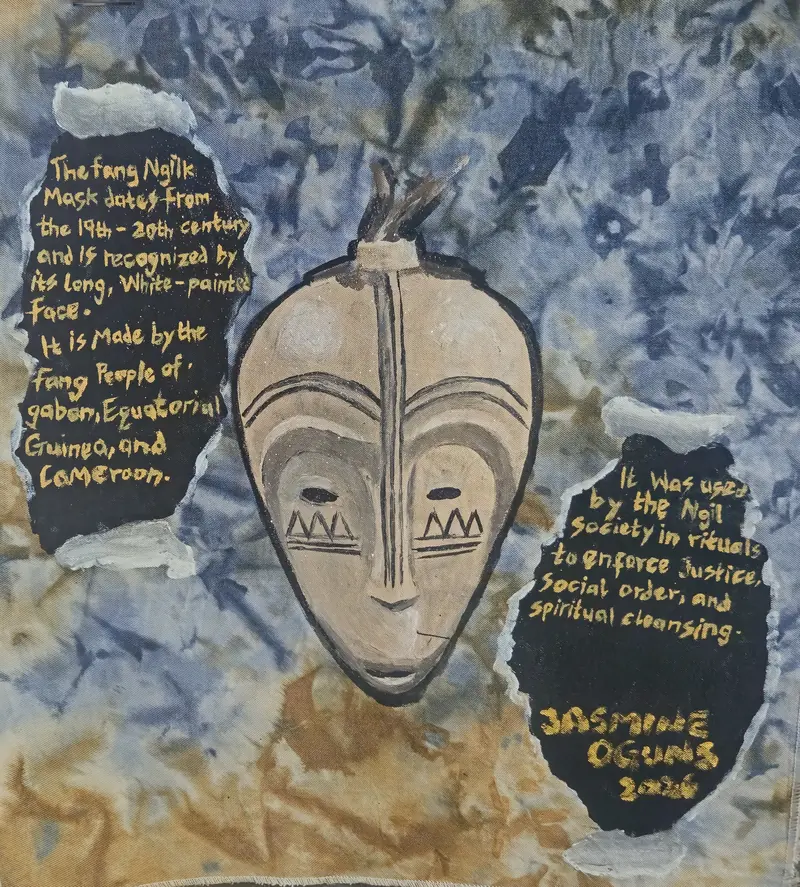 The fang Ngilk
Mask dates from
the 19th - 20th century
and is recognized by
its long, White-painted
Face.
It is Made by the
fang People of
gabon, Equatorial
Guinea, and
Cameroon.
It was used
by the Ngil
Society in rituals
to enforce Justice,
Social order, and
spiritual cleansing.
JASMINE
OGUNS
2026